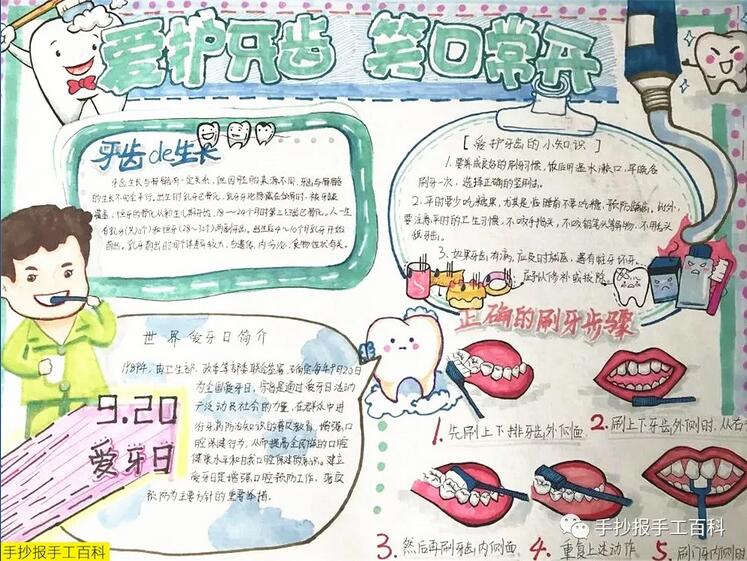 爱护牙齿 笑口常开
牙齿de生长
牙齿生长与骨骼有一定关系，但因胚胎来源不同，牙齿与骨骼
的生长不完全平行。出生时乳牙已骨化，乳牙牙孢隐藏在颌骨中，被牙龈
覆盖，恒牙的骨化从新生儿期开始，18～24个月时第三臼齿已骨化。人一生
有乳牙(共20个)和恒牙(28～32个)两副牙齿。出生后4～10个月乳牙开始
萌出。乳牙萌出时间个体差异较大，与遗传、内分泌、食物性状有关。
【爱护牙齿的小知识】
1.要养成良好的刷牙习惯，饭后用温水漱口，早晚各
刷牙一次，选择正确的坚刷法。
2.平时要少吃糖果，尤其是临睡前不要吃糖，预防龋齿。此外，
要注意平时的卫生习惯，不咬手指头，不咬铅笔头等异物，不用舌头
舐牙齿。
3.如果牙齿有病，应及时诊治，遇有蛀牙坏牙，
应予以修补或拔除。
世界爱牙日简介
1989年，由卫生部、教委等部委联合签署，确定每年9月20日
为全国爱牙日，宗旨是通过爱牙日活动
广泛动员社会的力量，在群众中进
行牙病防治知识的普及教育，增强口
腔保健行为，从而提高全民族的口腔
健康水平和自我口腔保健的意识。建立
爱牙日是增强口腔预防工作，落实
预防为主要方针的重要举措。
9.20
爱牙日
正确的刷牙步骤
1.先刷上下排牙齿外侧面
2.刷上下牙齿外侧时，从右
3.然后再刷牙齿内侧面
4.重复上述动作
5.刷门牙内侧时
手抄报手工百科
手抄报手工百科